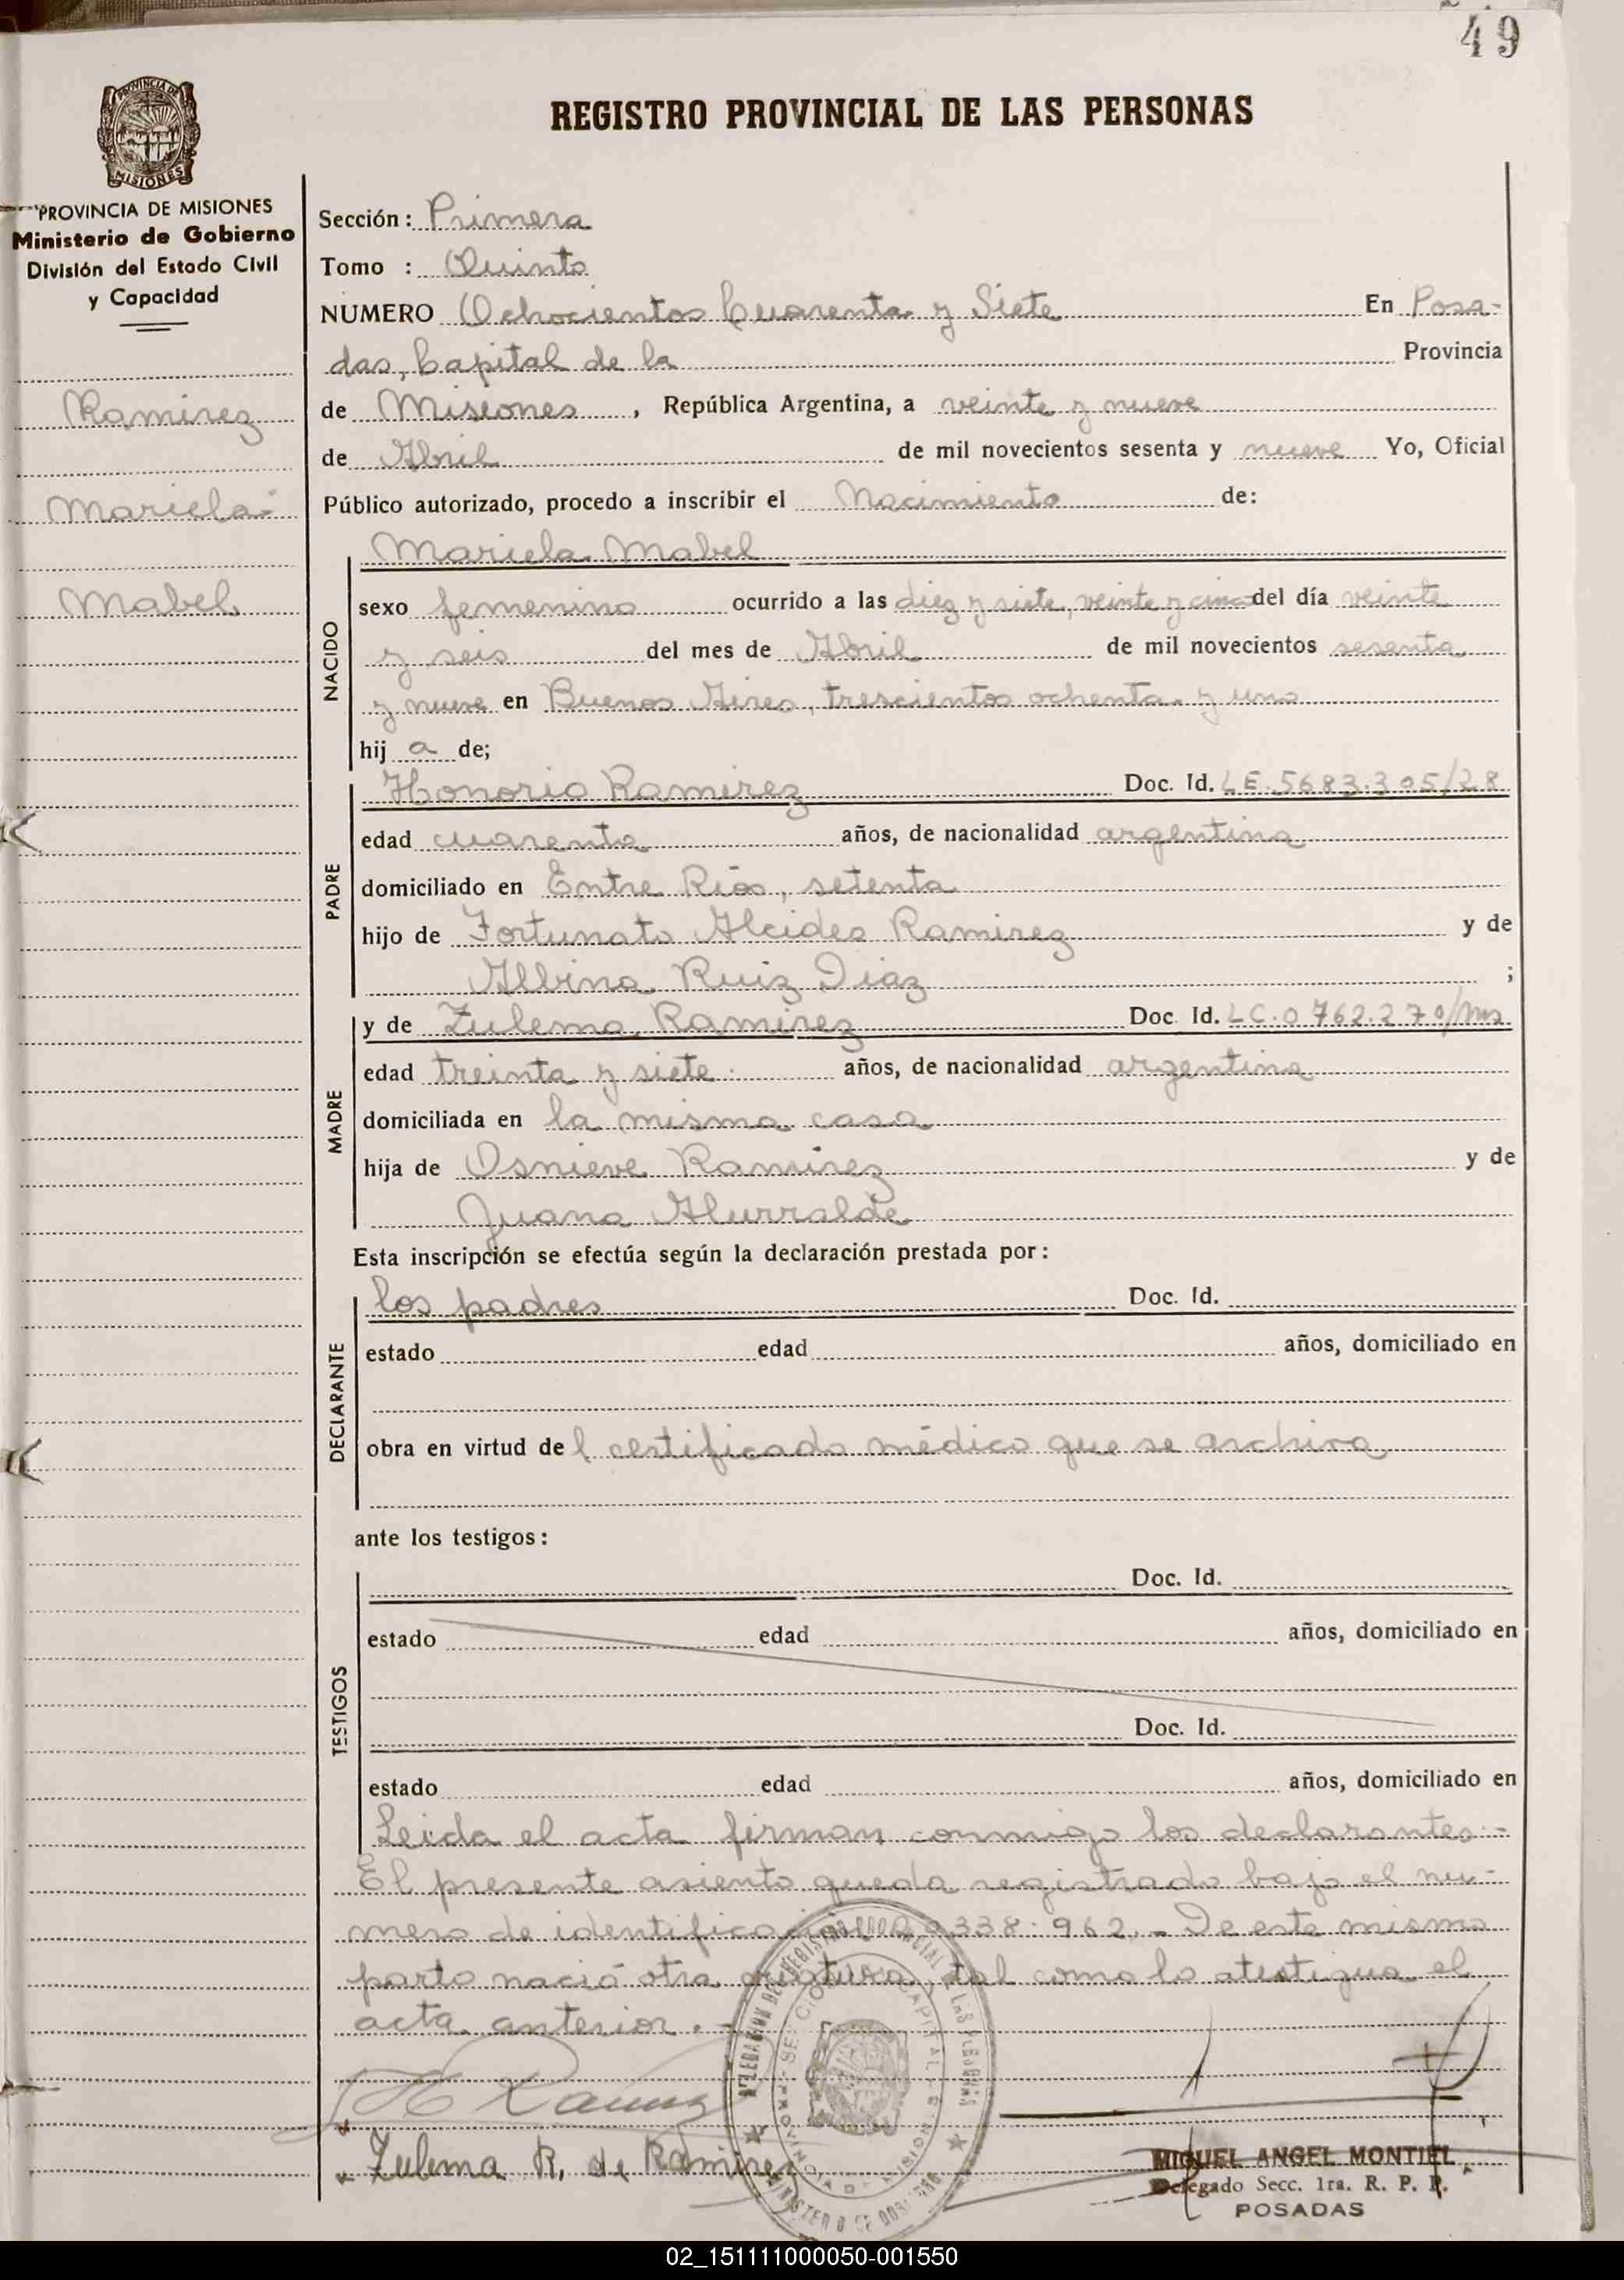 49
REGISTRO PROVINCIAL DE LAS PERSONAS
PROVINCIA DE MISIONES
PROVINCIA DE MISIONES
Ministerio de Gobierno
División del Estado Civil
y Capacidad
Ramirez
Mariela
Mabel
Sección: Primera
Tomo : Quinto
NUMERO Ochocientos Cuarenta y Siete En Posa-
das, Capital de la Provincia
de Misiones, República Argentina, a veinte y nueve
de Abril de mil novecientos sesenta y nueve Yo, Oficial
Público autorizado, procedo a inscribir el Nacimiento de:
NACIDO
Mariela Mabel
sexo femenino ocurrido a las diez y siete, veinte y cinco del día veinte
y seis del mes de Abril de mil novecientos sesenta
y nueve en Buenos Aires, trescientos ochenta y uno
hij a de;
PADRE
Honorio Ramirez Doc. Id. LE.5683.305/28
edad cuarenta años, de nacionalidad argentina
domiciliado en Entre Ríos, setenta
hijo de Fortunato Alcides Ramirez y de
Albina Ruiz Diaz ;
MADRE
y de Zulema Ramirez Doc. Id. LC.0762.270/Ms
edad treinta y siete años, de nacionalidad argentina
domiciliada en la misma casa
hija de Osnieve Ramirez y de
Juana Alurralde
Esta inscripción se efectúa según la declaración prestada por:
DECLARANTE
los padres Doc. Id.
estado edad años, domiciliado en
obra en virtud de l certificado médico que se archiva
ante los testigos:
TESTIGOS
Doc. Id.
estado edad años, domiciliado en
Doc. Id.
estado edad años, domiciliado en
Leida el acta firman conmigo los declarantes.-
El presente asiento queda registrado bajo el nu-
mero de identificación 338.962.- De este mismo
parto nació otra criatura, tal como lo atestigua el
acta anterior.-
H Ramirez
Zulema R. de Ramirez
MIGUEL ANGEL MONTIEL
Delegado Secc. 1ra. R. P. P.
POSADAS
02_151111000050-001550